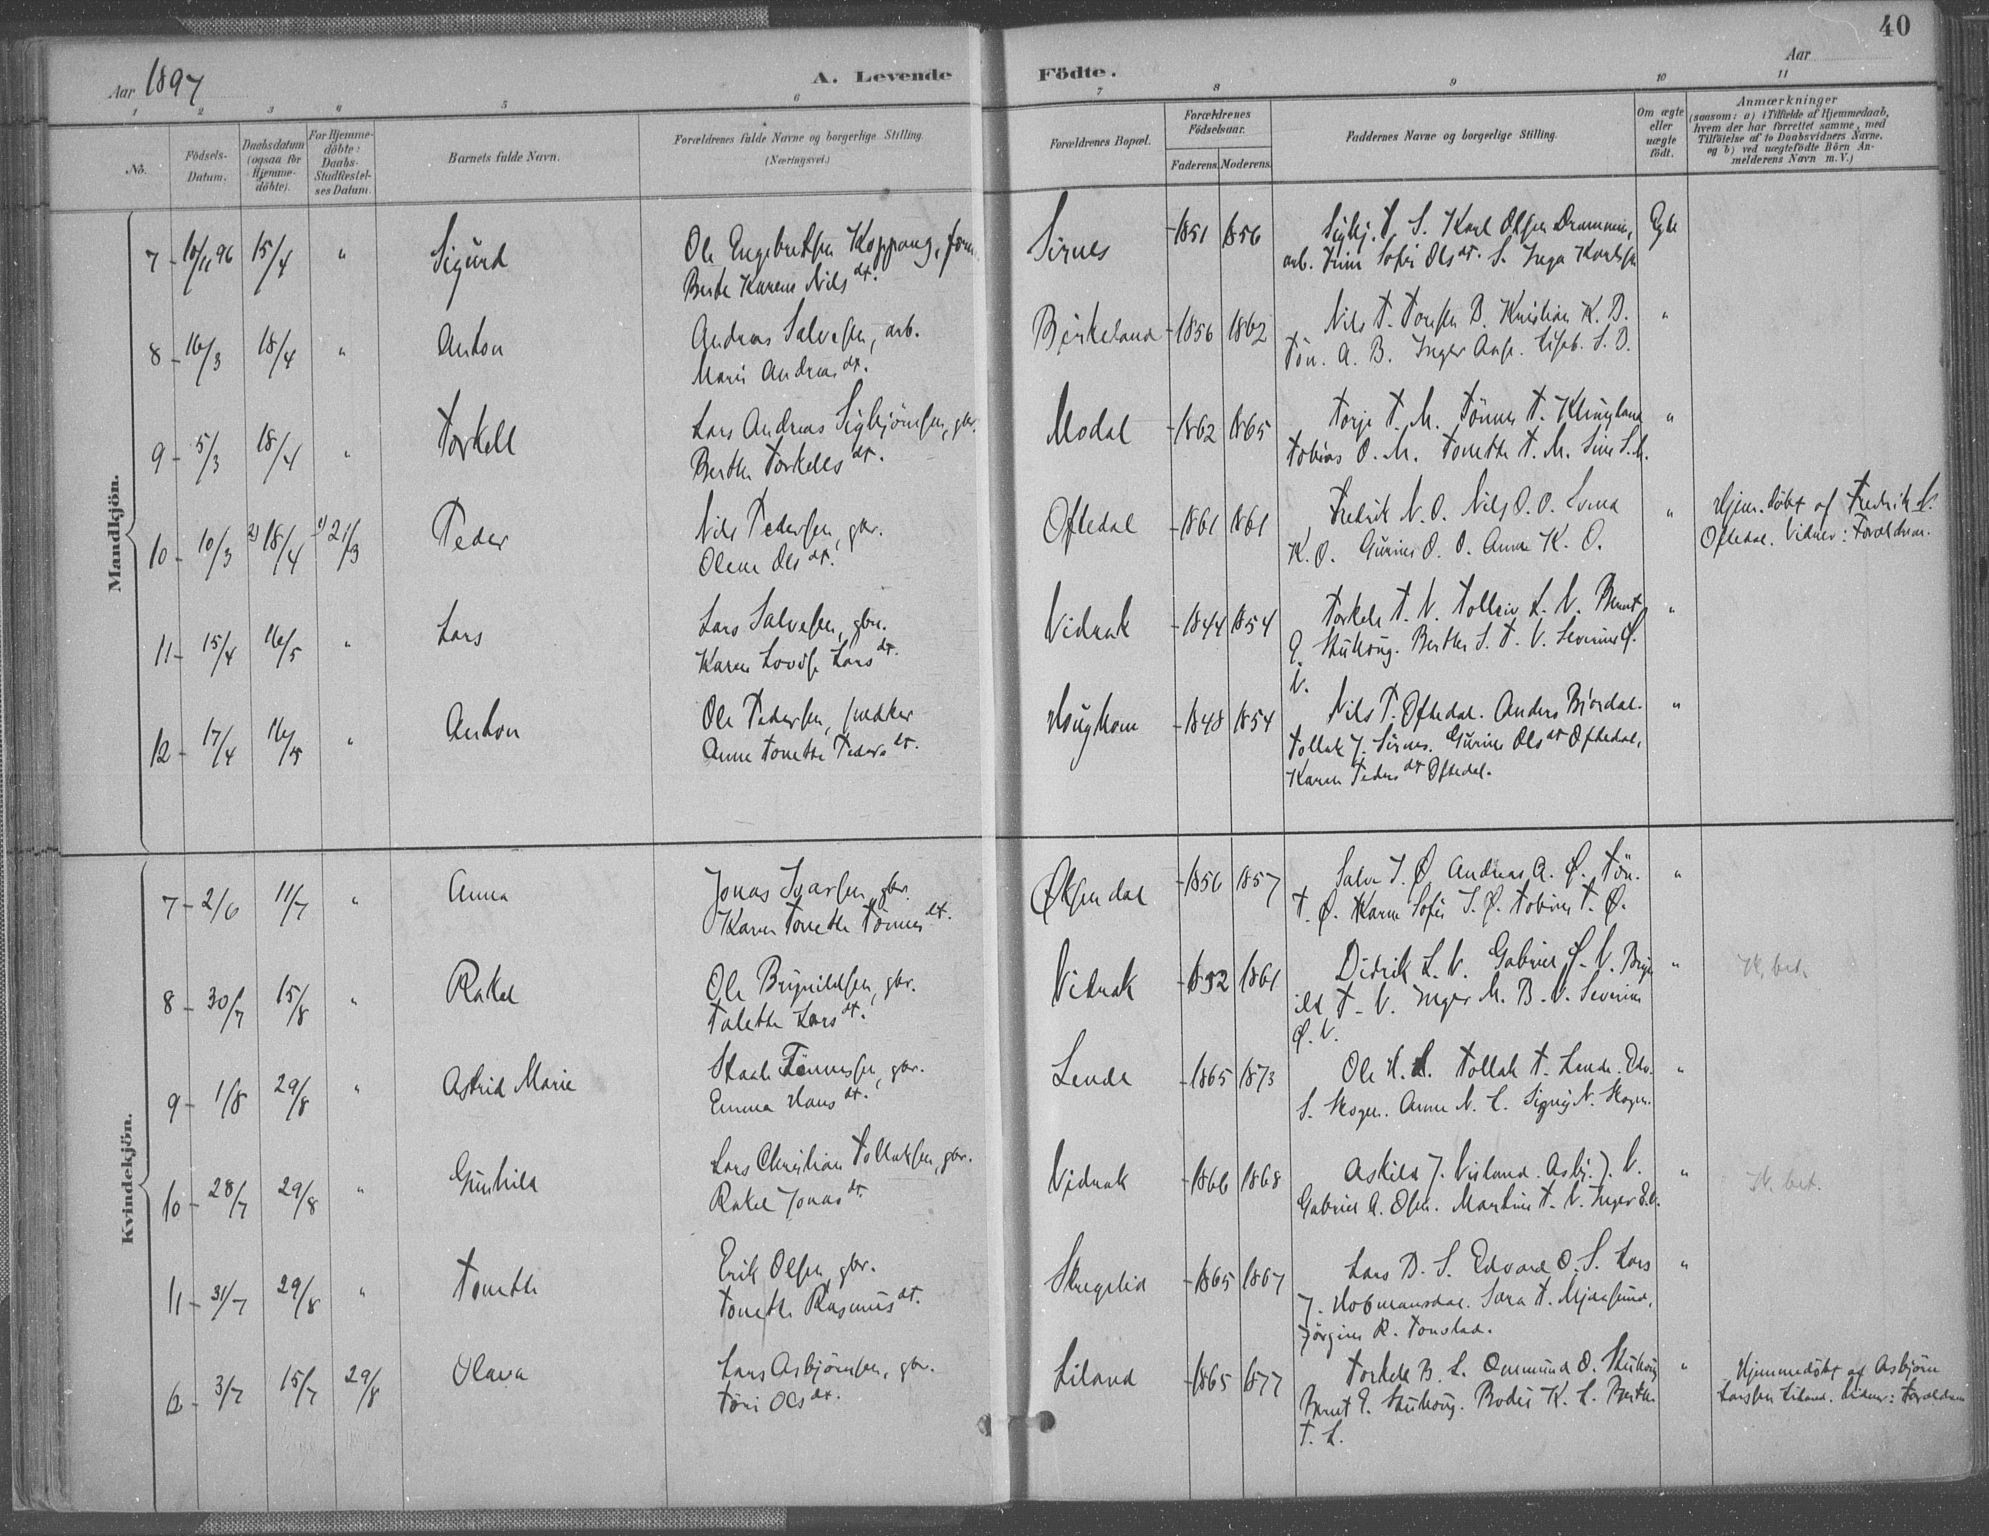 40
Aar 1897
A. Levende Födte.
Aar
1 2 3 6 5 6 7 8 9 10 11
No.
Födsels-Datum.
Daabsdatum (ogsaa for Hjemme-döbte).
For Hjemme-döbte: Daabs-Stadfæstel-ses Datum.
Barnets fulde Navn.
Forældrenes fulde Navne og borgerlige Stilling. (Næringsvei.)
Forældrenes Bopæl.
Forældrenes Födselsaar.
Faderens. Moderens.
Faddernes Navne og borgerlige Stilling.
Om ægte eller uægte födt.
Anmærkninger
(saasom: a) i Tilfælde af Hjemmedaab, hvem der har forrettet samme, med Tilföielse af to Daabsvidners Navne, og b) ved uægtefödte Börn An-melderens Navn m. V.)
Mandkjön.
7 - 10/11 96 15/4 " Sigurd
Ole Engebretsen Koppang, 
Berte Karene Nilsdt.
Sirnes - 1851 1856
Karl Olsen
arb. Sofie Olsdt. S. Inga
Egte
8 - 16/3 18/4 " Anton
Andreas Salvesen, arb.
Marie Andreasdt.
Birkeland - 1856 1862
Nils T. B. Kristian K. B.
Tön. A. B. Inger Lisb. S. B.
"
9 - 5/3 18/4 " Torkell
Lars Andreas Sigbjörnsen, gbr.
Berthe Torkelsdt.
Modal - 1862 1865
Torje T. M. Tönnes T. Klungland
Tobias O. M. Tonette T. M. Sine S. M.
"
10 - 10/3 2) 18/4 1) 21/3 Peder
Nils Pedersen, gbr.
Olene Olsdt.
Oftedal - 1861 1861
Fredrik N. O. Nils O. O. Lovra
K. O. Gurine O. O. Anne K. O.
"
Hjem.döbt af Fredrik N.
Oftedal. Vidner: Forældrene.
11 - 15/4 16/5 " Lars
Lars Salvesen, gbr.
Karen Lovise Larsdt.
Vidrak - 1844 1854
Torkel T. V. Tolleiv L. V. Bernt
E. Stuhoug. Berthe S. T. V. Severine Ö.
V.
"
12 - 17/4 16/5 " Anton
Ole Pedersen, snedker
Anne Tonette Pedersdt.
Haughom - 1848 1854
Nils P. Oftedal. Anders Bjordal.
Tollak J. Sirnes. Gurine Olsdt Oftedal,
Karen Pedersdt Oftedal.
"
Kvindekjön.
7 - 2/6 11/7 " Anna
Jonas Ivarsen, gbr.
Karen Tonette Tönnesdt.
Øksendal - 1856 1857
Salve J. Ø. Andreas A. Ø. Tön.
T. Ø. Karen Sofie J. Ø. Tobine T. Ø.
"
8 - 30/7 15/8 " Rakel
Ole Brynildsen, gbr.
Talette Larsdt.
Vidrak - 1852 1861
Didrik L. V. Gabriel Ö. V. Bryn
ild T. V. Inger M. B. V. Severine
Ø. V.
"
K. bet.
9 - 1/8 29/8 " Astrid Marie
Staale Tönnessen, gbr.
Emma Hansdt.
Lende - 1865 1873
Ole H. L. Tollak T. Lende. Edv.
S. Skogen. Anne N. L. Signy N. Skogen.
"
10 - 28/7 29/8 " Gunhild
Lars Christian Tollaksen, gbr.
Rakel Jonasdt.
Vidrak - 1866 1868
Askild J. Virland. Asbj. J. V.
Gabriel A. Olsen. Martine T. V. Inger E. V.
"
K. bet.
11 - 31/7 29/8 " Tonette
Erik Olsen, gbr.
Tonette Rasmusdt.
Skregelid - 1865 1867
Lars D. S. Edvard O. S. Lars
J. Hobmansdal. Sara T. Mjaasund,
Jörgine R. Tonstad.
"
12 - 3/7 15/7 29/8 Olava
Lars Asbjörnsen, gbr.
Töri Olsdt.
Liland - 1865 1877
Torkell B. L. Ommund O. Stuhoug
Bernt E. Stuhoug. Bodil K. L. Berthe
T. L.
"
Hjemmedöbt af Asbjörn
Larssen Liland. Vidner: Forældrene